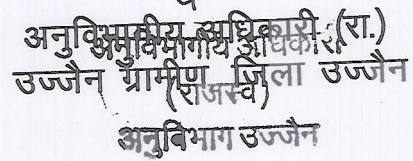 अनुविभागीय अधिकारी (रा.)
अनुविभागीय अधिकारी
उज्जैन ग्रामीण जिला उज्जैन
(राजस्व)
अनुविभाग उज्जैन